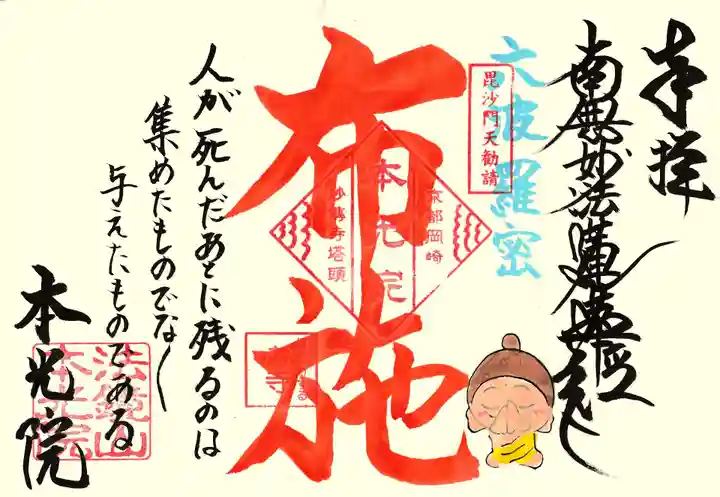 奉拝
南無妙法蓮華経
六波羅密
毘沙門天勧請
布施
京都岡崎
本光院
妙傳寺塔頭
人が死んだあとに残るのは
集めたものでなく
与えたものである
本光院
法鏡山
本光院